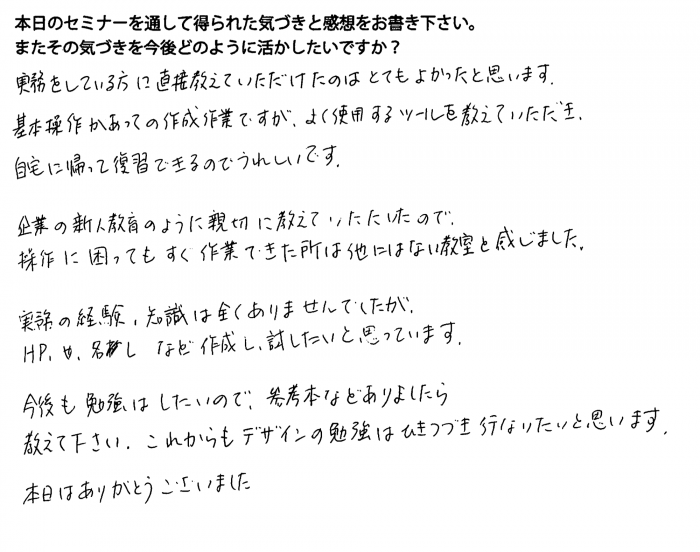 本日のセミナーを通して得られた気づきと感想をお書き下さい。
またその気づきを今後どのように活かしたいですか？
実務をしている方に直接教えていただけたのはとてもよかったと思います。
基本操作かあっての作成作業ですが、よく使用するツールを教えていただき、
自宅に帰って復習できるのでうれしいです。
企業の新人教育のように親切に教えていただいたので、
操作に困ってもすぐ作業できた所は他にはない教室と感じました。
実務の経験、知識は全くありませんでしたが、
HP、や、名刺し など作成し、試したいと思っています。
今後も勉強はしたいので、参考本などありましたら
教えて下さい。これからもデザインの勉強はひきつづき行ないたいと思います。
本日はありがとうございました